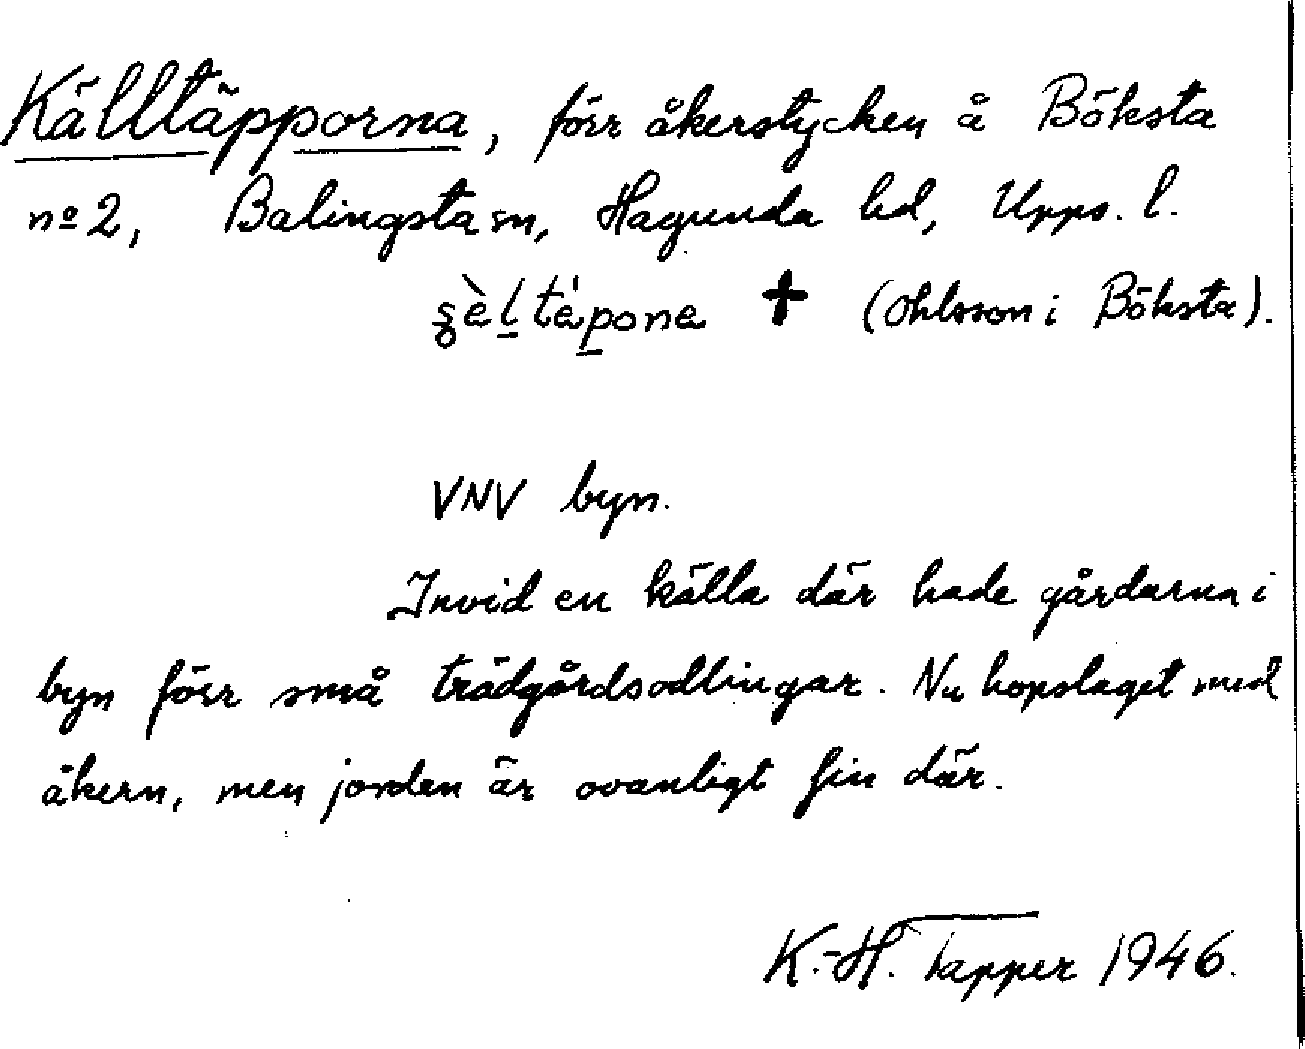 Källtäpporna, förr åkerstycken å Böksta
nº 2, Balingsta sn, Hagunda hd, Upps. l.
✝ (Ohlsson i Böksta).
VNV byn.
Invid en källa där hade gårdarna i
byn förr små trädgårdsodlingar. Nu hopslaget med
åkern, men jorden är ovanligt fin där.
K.-H. Tapper 1946.